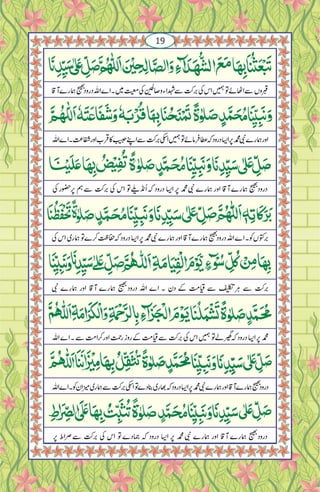 19
تَبْعَثُنَا بِهَا مَعَ الشُّهَدَآءِ وَالصَّالِحِيْنَ اَللّٰهُمَّ صَلِّ عَلٰى سَيِّدِنَا
قبروں سے اٹھائے تو ہمیں اس کی برکت سے شہداء و صالحین کی معیت میں۔ اے اللہ درود بھیج ہمارے آقا
وَنَبِيِّنَا مُحَمَّدٍ صَلٰوةً تَمْنَحُنَا بِهَا قُرْبَهٗ وَشَفَاعَتَهٗ اَللّٰهُمَّ
اور ہمارے نبی محمد پر ایسا درود کہ عطا فرمائے تو ہمیں اسکی برکت سے اپنے محبوب کا قرب اور شفاعت۔ اے اللہ
صَلِّ عَلٰى سَيِّدِنَا وَنَبِيِّنَا مُحَمَّدٍ صَلٰوةً تُفِيْضُ بِهَا عَلَيْنَا
درود بھیج ہمارے آقا اور ہمارے نبی محمد پر ایسا درود کہ انڈیلے تو اس کی برکت سے ہم پر حضور کی
بَرَكَاتِهٖ اَللّٰهُمَّ صَلِّ عَلٰى سَيِّدِنَا وَنَبِيِّنَا مُحَمَّدٍ صَلٰوةً تَحْفَظُنَا
برکتوں کو۔ اے اللہ درود بھیج ہمارے آقا اور ہمارے نبی محمد پر ایسا درود کہ حفاظت کرے تو ہماری اس کی
بِهَا مِنْ كُلِّ سُوْٓءٍ يَوْمَ الْقِيَامَةِ اَللّٰهُمَّ صَلِّ عَلٰى سَيِّدِنَا وَنَبِيِّنَا
برکت سے ہر تکلیف سے قیامت کے دن ۔ اے اللہ درود بھیج ہمارے آقا اور ہمارے نبی
مُحَمَّدٍ صَلٰوةً تَشْمَلُنَا يَوْمَ الْجَزَآءِ بِالرَّحْمَةِ وَالْكَرَامَةِ اَللّٰهُمَّ
محمد پر ایسا درود کہ گھیرلے تو ہمیں اس کی برکت سے قیامت کے روز رحمت اور کرامت سے۔ اے اللہ
صَلِّ عَلٰى سَيِّدِنَا وَنَبِيِّنَا مُحَمَّدٍ صَلٰوةً تُثْقِلُ بِهَا مِيْزَانَنَا اَللّٰهُمَّ
درود بھیج ہمارے آقا اور ہمارے نبی محمد پر ایسا درود کہ بھاری بنادے تو اسکی برکت سے ہماری میزان کو۔ اے اللہ
صَلِّ عَلٰى سَيِّدِنَا وَنَبِيِّنَا مُحَمَّدٍ صَلٰوةً تُثَبِّتُ بِهَا عَلَى الصِّرَاطِ
درود بھیج ہمارے آقا اور ہمارے نبی محمد پر ایسا درود کہ جمادے تو اس کی برکت سے صراط پر